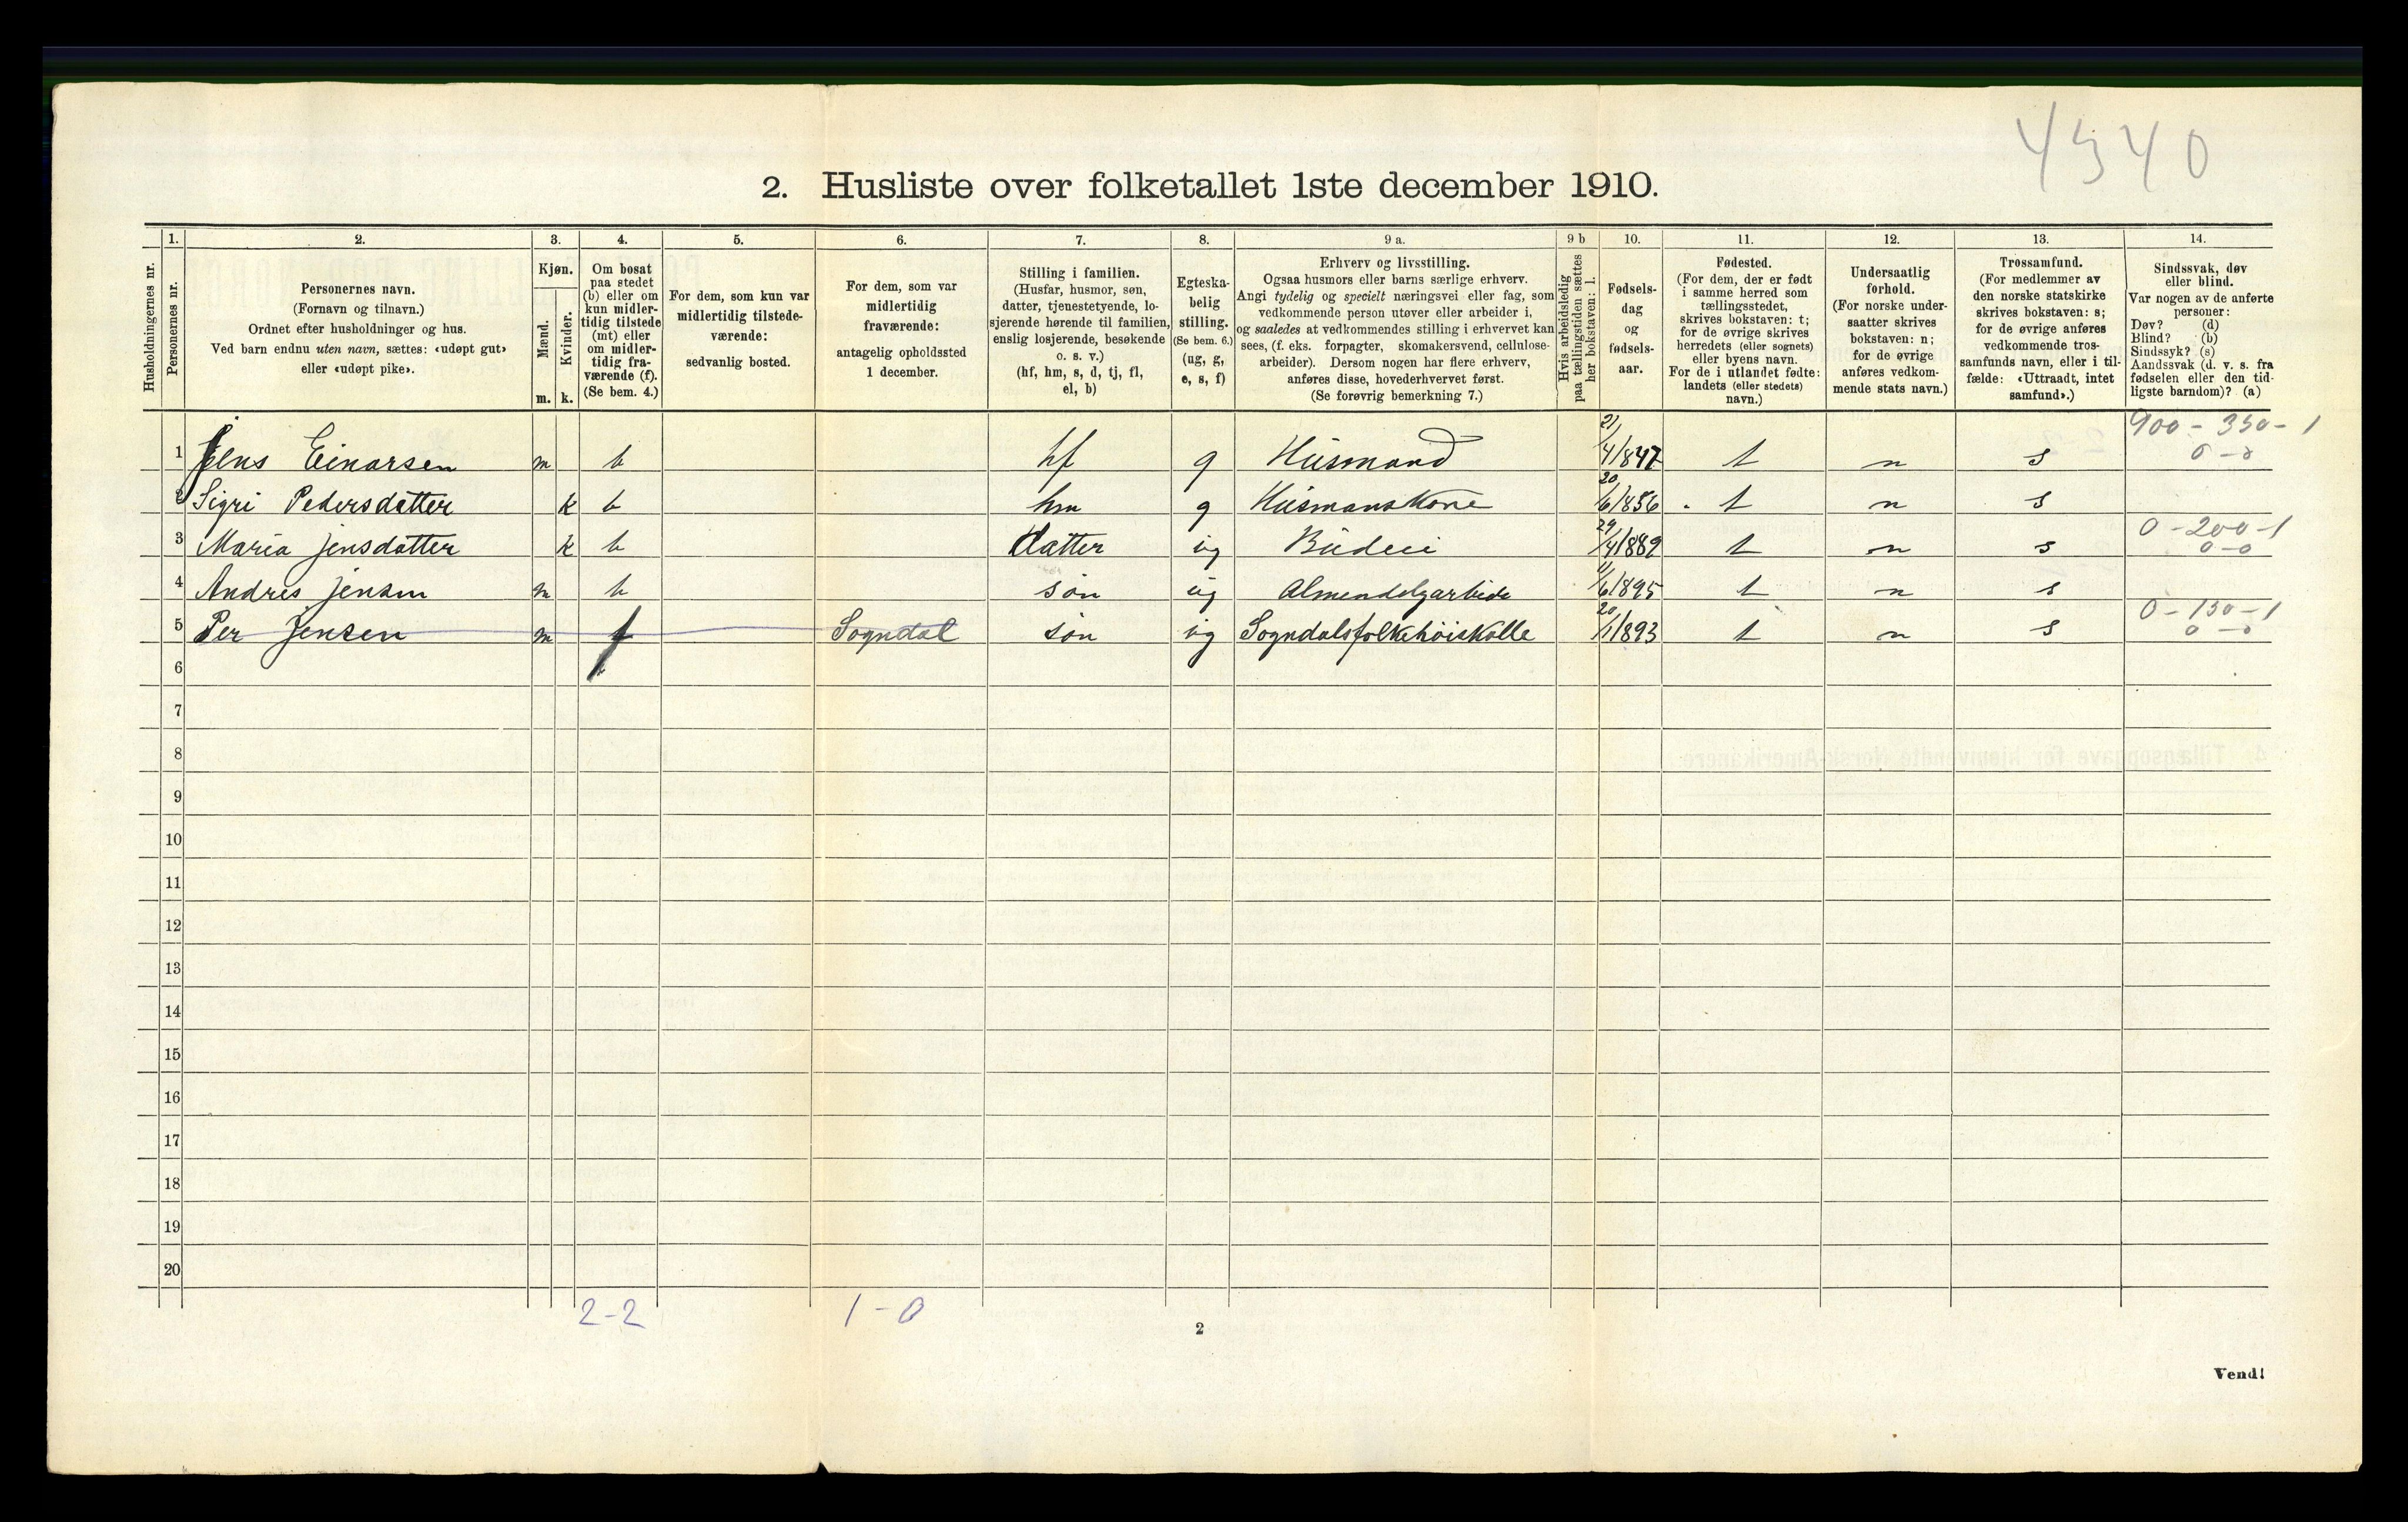 4340
2. Husliste over folketallet 1ste december 1910.
Husholdningernes nr.
1.
Personernes nr.
2.
Personernes navn.
(Fornavn og tilnavn.)
Ordnet efter husholdninger og hus.
Ved barn endnu uten navn, sættes: «udøpt gut»
eller «udøpt pike».
3.
Kjøn.
Mænd.
Kvinder.
m. k.
4.
Om bosat
paa stedet
(b) eller om
kun midler-
tidig tilstede
(mt) eller
om midler-
tidig fra-
værende (f).
(Se bem. 4.)
5.
For dem, som kun var
midlertidig tilstede-
værende:
sedvanlig bosted.
6.
For dem, som var
midlertidig
fraværende:
antagelig opholdssted
1 december.
7.
Stilling i familien.
(Husfar, husmor, søn,
datter, tjenestetyende, lo-
sjerende hørende til familien,
enslig losjerende, besøkende
o. s. v.)
(hf, hm, s, d, tj, fl,
el, b)
8.
Egteska-
belig
stilling.
(Se bem. 6.)
(ug, g,
e, s, f)
9 a.
Erhverv og livsstilling.
Ogsaa husmors eller barns særlige erhverv.
Angi tydelig og specielt næringsvei eller fag, som
vedkommende person utøver eller arbeider i,
og saaledes at vedkommendes stilling i erhvervet kan
sees, (f. eks. forpagter, skomakersvend, cellulose-
arbeider). Dersom nogen har flere erhverv,
anføres disse, hovederhvervet først.
(Se forøvrig bemerkning 7.)
9 b
Hvis arbeidsledig
paa tællingstiden sættes
her bokstaven: l.
10.
Fødsels-
dag
og
fødsels-
aar.
11.
Fødested.
(For dem, der er født
i samme herred som
tællingsstedet,
skrives bokstaven: t;
for de øvrige skrives
herredets (eller sognets)
eller byens navn.
For de i utlandet fødte:
landets (eller stedets)
navn.)
12.
Undersaatlig
forhold.
(For norske under-
saatter skrives
bokstaven: n;
for de øvrige
anføres vedkom-
mende stats navn.)
13.
Trossamfund.
(For medlemmer av
den norske statskirke
skrives bokstaven: s;
for de øvrige anføres
vedkommende tros-
samfunds navn, eller i til-
fælde: «Uttraadt, intet
samfund».)
14.
Sindssvak, døv
eller blind.
Var nogen av de anførte
personer:
Døv? (d)
Blind? (b)
Sindssyk? (s)
Aandssvak (d. v. s. fra
fødselen eller den tid-
ligste barndom)? (a)
1 Jens Einarsen m b hf g Husmand 21/4/847 t n s 900 - 350 - 1 0 - 0
2 Sigri Pedersdatter k b hm g Husmanskone 20/6/856 t n s
3 Maria Jensdatter k b datter ug Budeie 29/4/889 t n s 0 - 200 - 1 0 - 0
4 Andres Jensen m b søn ug 11/6/895 t n s
5 Per Jensen m f Sogndal søn ug Sogndalsfolkehøiskolle 20/1/893 t n s 0 - 150 - 1 0 - 0
6
7
8
9
10
11
12
13
14
15
16
17
18
19
20
2-2 1-0
2
Vend!